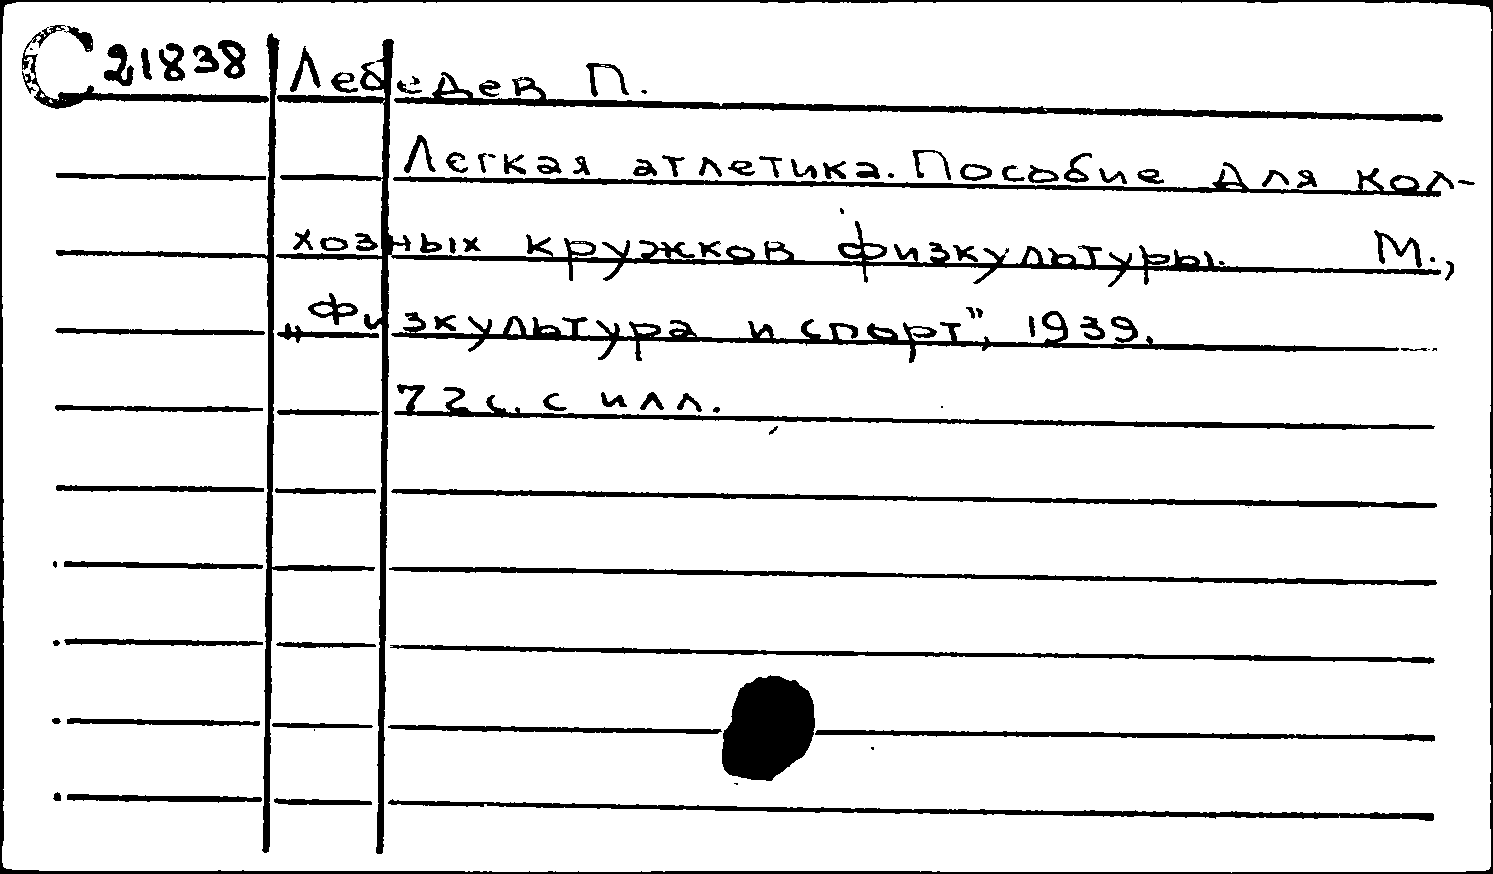 С 21838 Лебедев П.
Легкая атлетика. Пособие для кол-
хозных кружков физкультуры. М.,
„Физкультура и спорт", 1939.
72 с. с илл.